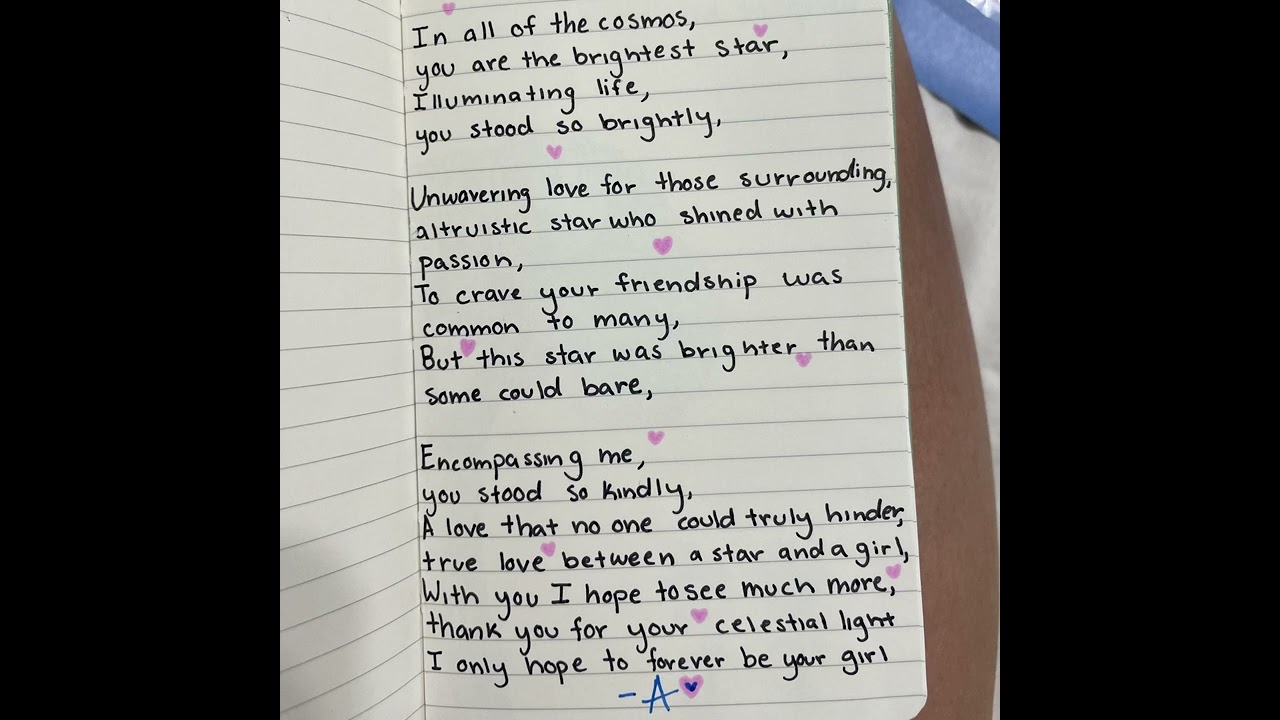 In all of the cosmos,
you are the brightest star,
Illuminating life,
you stood so brightly,
Unwavering love for those surrounding,
altruistic star who shined with
passion,
To crave your friendship was
common to many,
But this star was brighter than
some could bare,
Encompassing me,
you stood so kindly,
A love that no one could truly hinder,
true love between a star and a girl,
With you I hope to see much more,
thank you for your celestial light
I only hope to forever be your girl
-A